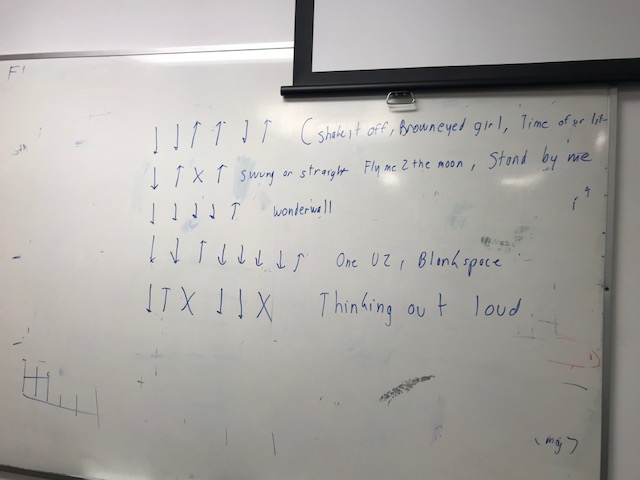 F1
↓ ↓ ↑ ↑ ↓ ↑ (shake it off, Browneyed girl, Time of ur life
↓ ↑ X ↑ swung or straight Fly me 2 the moon, Stand by me
↓ ↓ ↓ ↓ ↑ wonderwall
↓ ↓ ↑ ↓ ↓ ↓ ↓ ↑ One U2, Blankspace
↓ ↑ X ↓ ↓ X Thinking out loud
(maj7